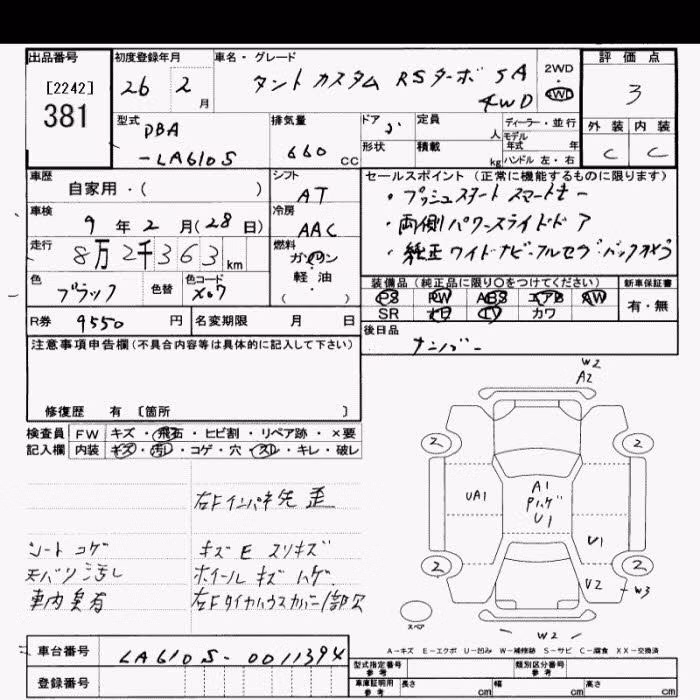 出品番号 初度登録年月 車名・グレード 2WD 評価点
[2242] 26 2月 タント カスタム RSターボ SA 4WD 4WD 3
381
型式 DBA -LA610S 排気量 660 CC ドア 5 定員 人 ディーラー・並行 外装 内装
形状 積載 kg モデル年式 年 ハンドル 左・右 C C
車歴 自家用・( ) シフト AT セールスポイント (正常に機能するものに限ります)
・プッシュスタート スマートキー
車検 9年 2月(28日) 冷房 AAC ・両側パワースライドドア
走行 8万2千363km 燃料 ガソリン・軽油・( ) ・純正ワイドナビ フルセグ バックカメラ
色 ブラック 色替 色コード X07 装備品 (純正品に限り○をつけてください) 新車保証書
PS PW ABS エアB AW 有・無
R券 9550円 名変期限 月 日 SR ナビ TV カワ
注意事項申告欄(不具合内容等は具体的に記入して下さい) 後日品 ナンバー
修復歴 有 〔箇所 〕
検査員 FW キズ・飛石・ヒビ割・リペア跡・×要
記入欄 内装 キズ・汚レ・コゲ・穴・スレ・キレ・破レ
右Fインパネ先 歪
シート コゲ キズE スリキズ
天バリ汚レ ホイール キズ ハゲ
車内臭有 右Fタイヤハウスカバー1部欠
W2
A2
2 2
UA1 A1 Pハゲ U1
U1
2 2
U2 W3
スペア W2
A-キズ E-エクボ U-凹み W-補修跡 S-サビ C-腐食 XX-交換済
車台番号 LA610S-0011394 型式指定番号 参考 類別区分番号 参考
登録番号 車庫証明用 参考 長さ cm 幅 cm 高さ cm